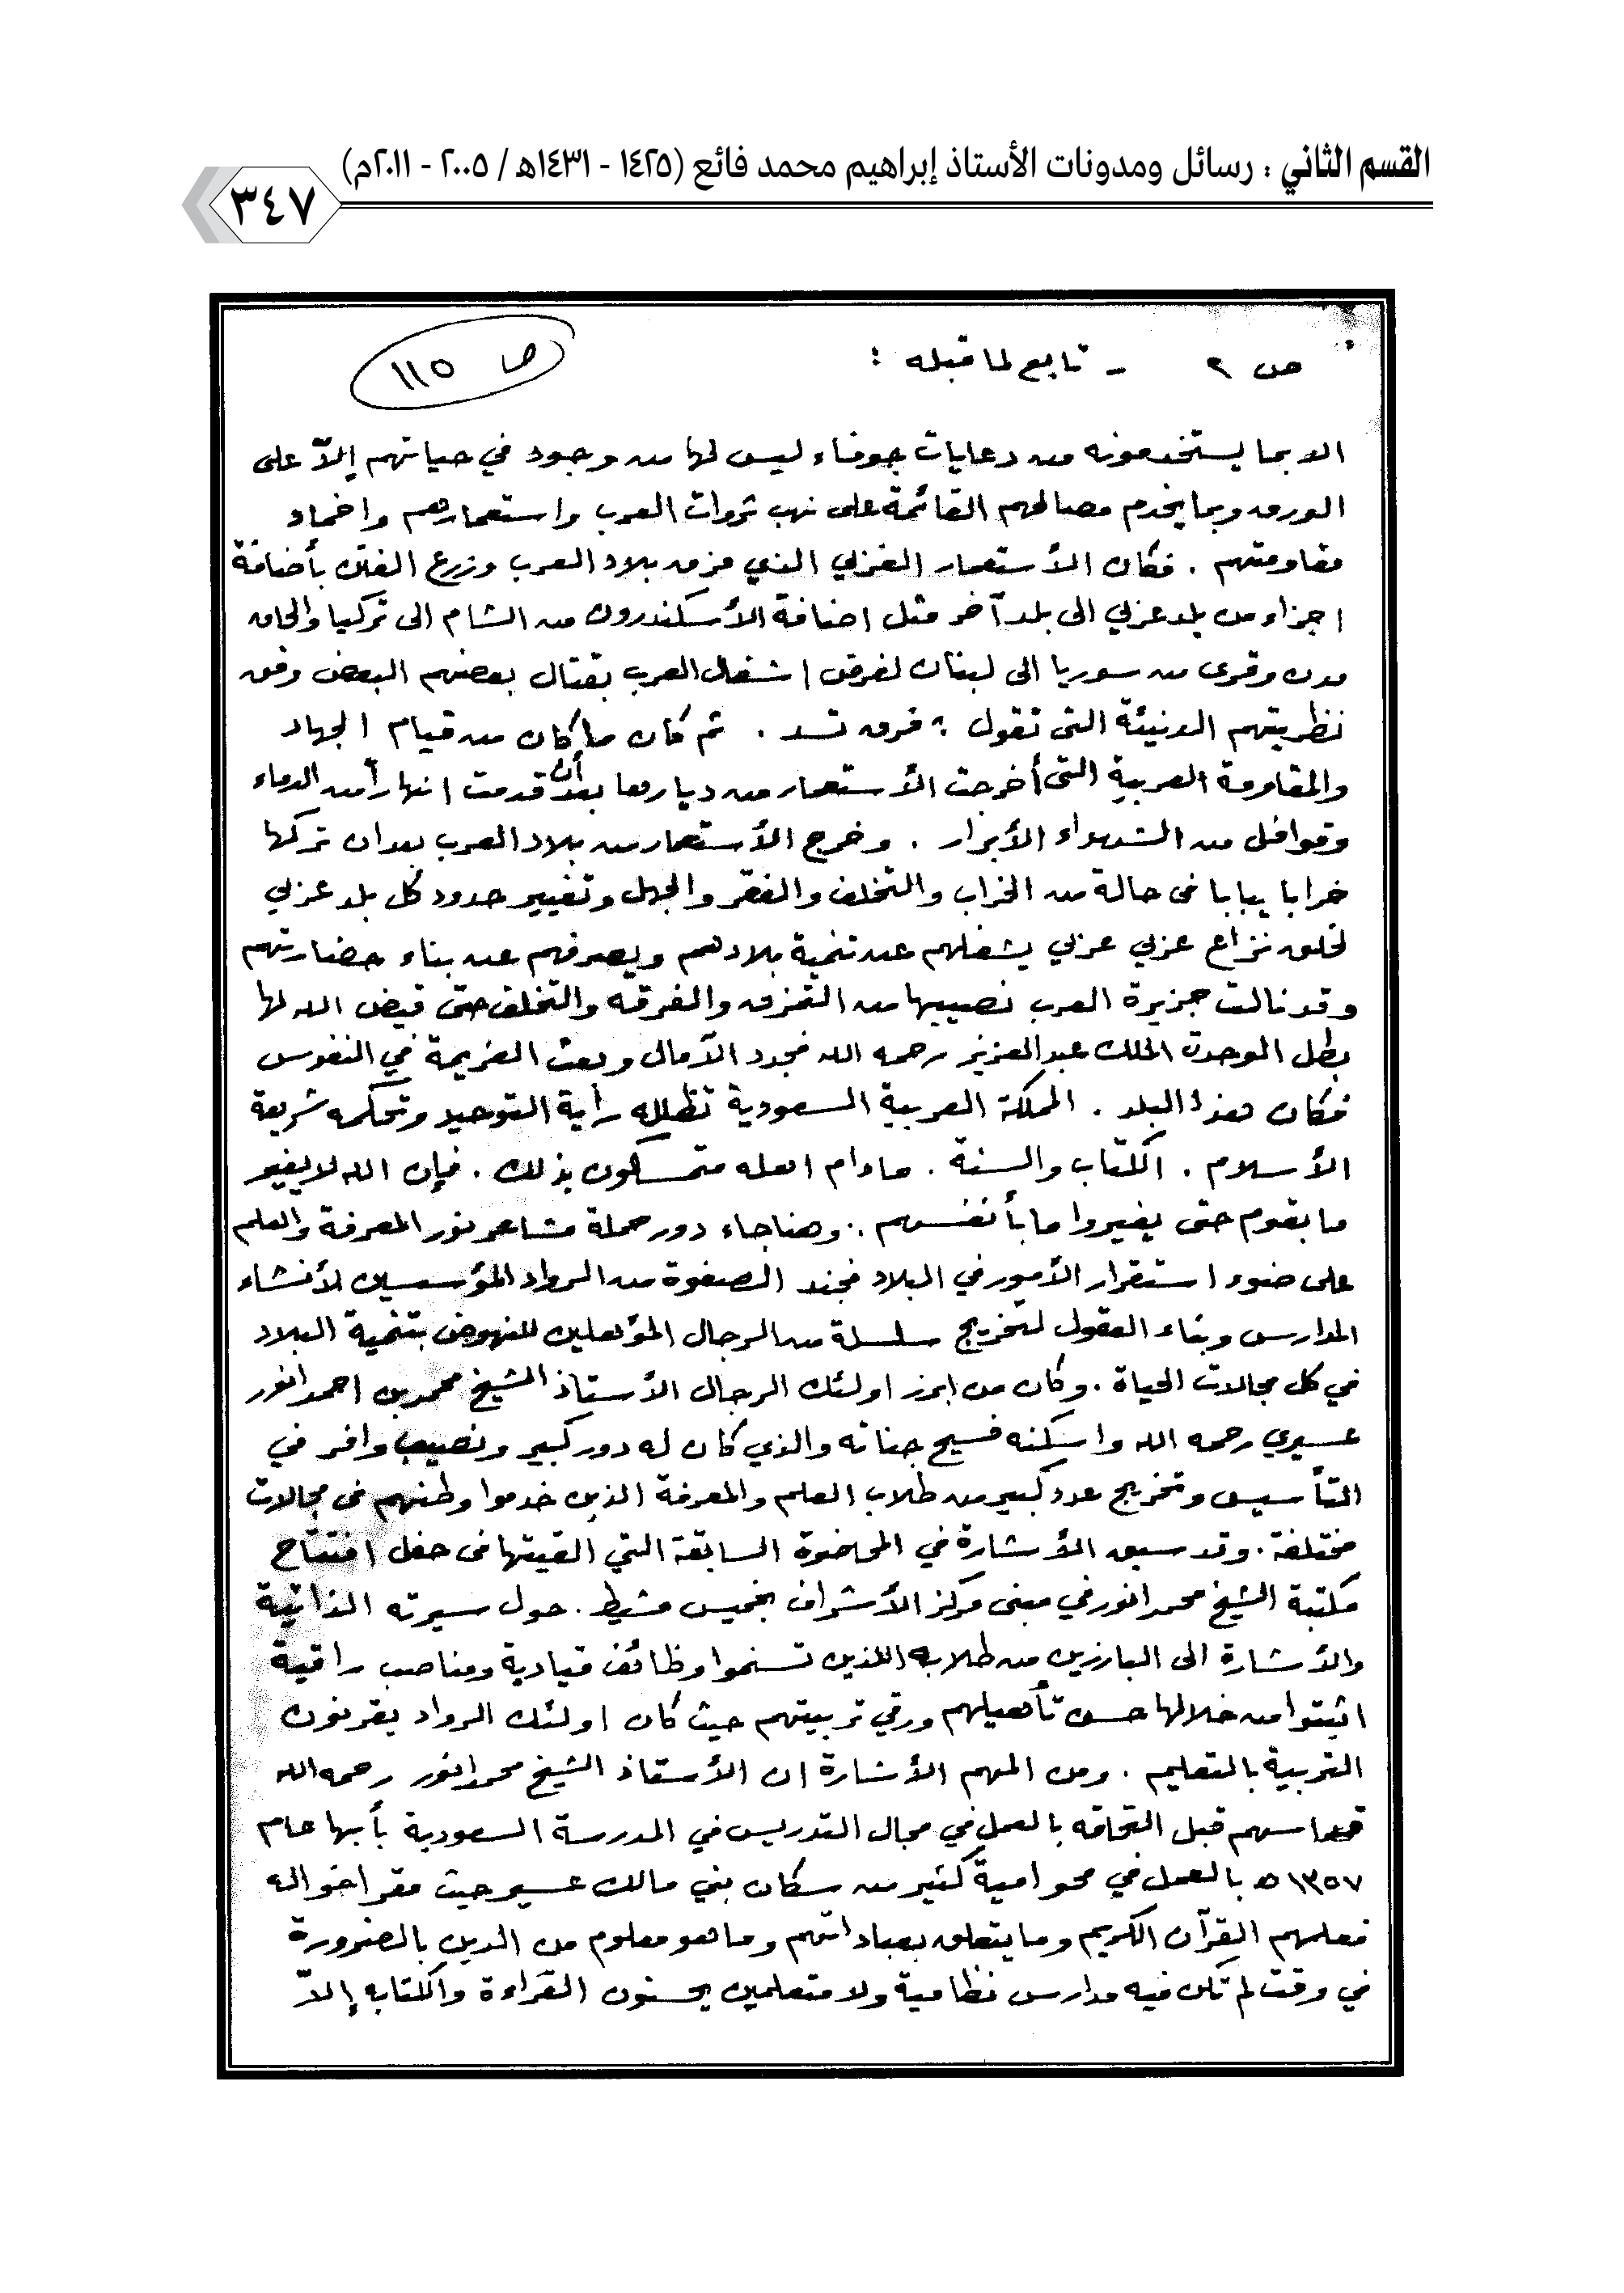 القسم الثاني : رسائل ومدونات الأستاذ إبراهيم محمد فائع (١٤٢٥ - ١٤٣١هـ / ٢٠٠٥ - ٢٠١١م)
٣٤٧
ص ٢ - تابع لما قبله :
ص ١١٥
الا بما يستخدمونه من دعايات جوفاء ليس لها من وجود في حياتهم إلاّ على
الورق وبما يخدم مصالحهم القائمة على نهب ثروات العرب واستعمارهم واخماد
مقاومتهم . فكان الأستعمار الغربي الذي مزق بلاد العرب وزرع الفتن بأضافة
اجزاء من بلد عربي الى بلد آخر مثل اضافة الأسكندرون من الشام الى تركيا والحاق
مدن وقرى من سوريا الى لبنان لغرض اشغال العرب بقتال بعضهم البعض وفق
نظريتهم الدنيئة التى تقول : فرق تسد . ثم كان ما كان من قيام الجهاد
والمقاومة العربية التى أخرجت الأستعمار من ديارها بعد أن قدمت انهاراً من الدماء
وقوافل من الشهداء الأبرار . وخرج الأستعمار من بلاد العرب بعد ان تركها
خرابا يبابا في حالة من الخراب والتخلف والفقر والجهل وتغيير حدود كل بلد عربي
لخلق نزاع عربي عربي يشغلهم عن تنمية بلادهم ويصرفهم عن بناء حضارتهم
وقد نالت جزيرة العرب نصيبها من التمزق والفرقه والتخلف حتى قيض الله لها
بطل الوحدة الملك عبدالعزيز رحمه الله فجدد الآمال وبعث العزيمة في النفوس
فكان هذا البلد . المملكة العربية السعودية تظلله رأية التوحيد وتحكمه شريعة
الأسلام . الكتاب والسنة . مادام اهله متمسكون بذلك . فإن الله لا يغير
ما بقوم حتى يغيروا ما بأنفسهم . وهنا جاء دور حملة مشاعر نور المعرفة والعلم
على ضوء استقرار الأمور في البلاد فجند الصفوة من الرواد المؤسسين لأنشاء
المدارس وبناء العقول لتخريج سلسلة من الرجال المؤهلين للنهوض بتنمية البلاد
في كل مجالات الحياة . وكان من ابرز اولئك الرجال الأستاذ الشيخ محمد بن احمد انور
عسيري رحمه الله واسكنه فسيح جناته والذي كان له دور كبير ونصيب وافر في
التأسيس وتخريج عدد كبير من طلاب العلم والمعرفة الذين خدموا وطنهم في مجالات
مختلفة . وقد سبق الأشارة في المحاضرة السابقة التي القيتها في حفل افتتاح
مكتبة الشيخ محمد انور في مبنى مركز الأشراف بخميس مشيط . حول سيرته الذاتية
والأشارة الى البارزين من طلابه اللذين تسنموا وظائف قيادية ومناصب راقية
اثبتوا من خلالها حسن تأهيلهم ورقي تربيتهم حيث كان اولئك الرواد يقرنون
التربية بالتعليم . ومن المهم الأشارة ان الأستاذ الشيخ محمد انور رحمه الله
قد اسهم قبل التحاقه بالعمل في مجال التدريس في المدرسة السعودية بأبها عام
١٣٥٧ ه بالعمل في محو امية كثير من سكان بني مالك عسير حيث مقر اخواله
فعلمهم القرآن الكريم وما يتعلق بعباداتهم وما هو معلوم من الدين بالضرورة
في وقت لم تكن فيه مدارس نظامية ولا متعلمين يحسنون القراءة والكتابه إلاّ